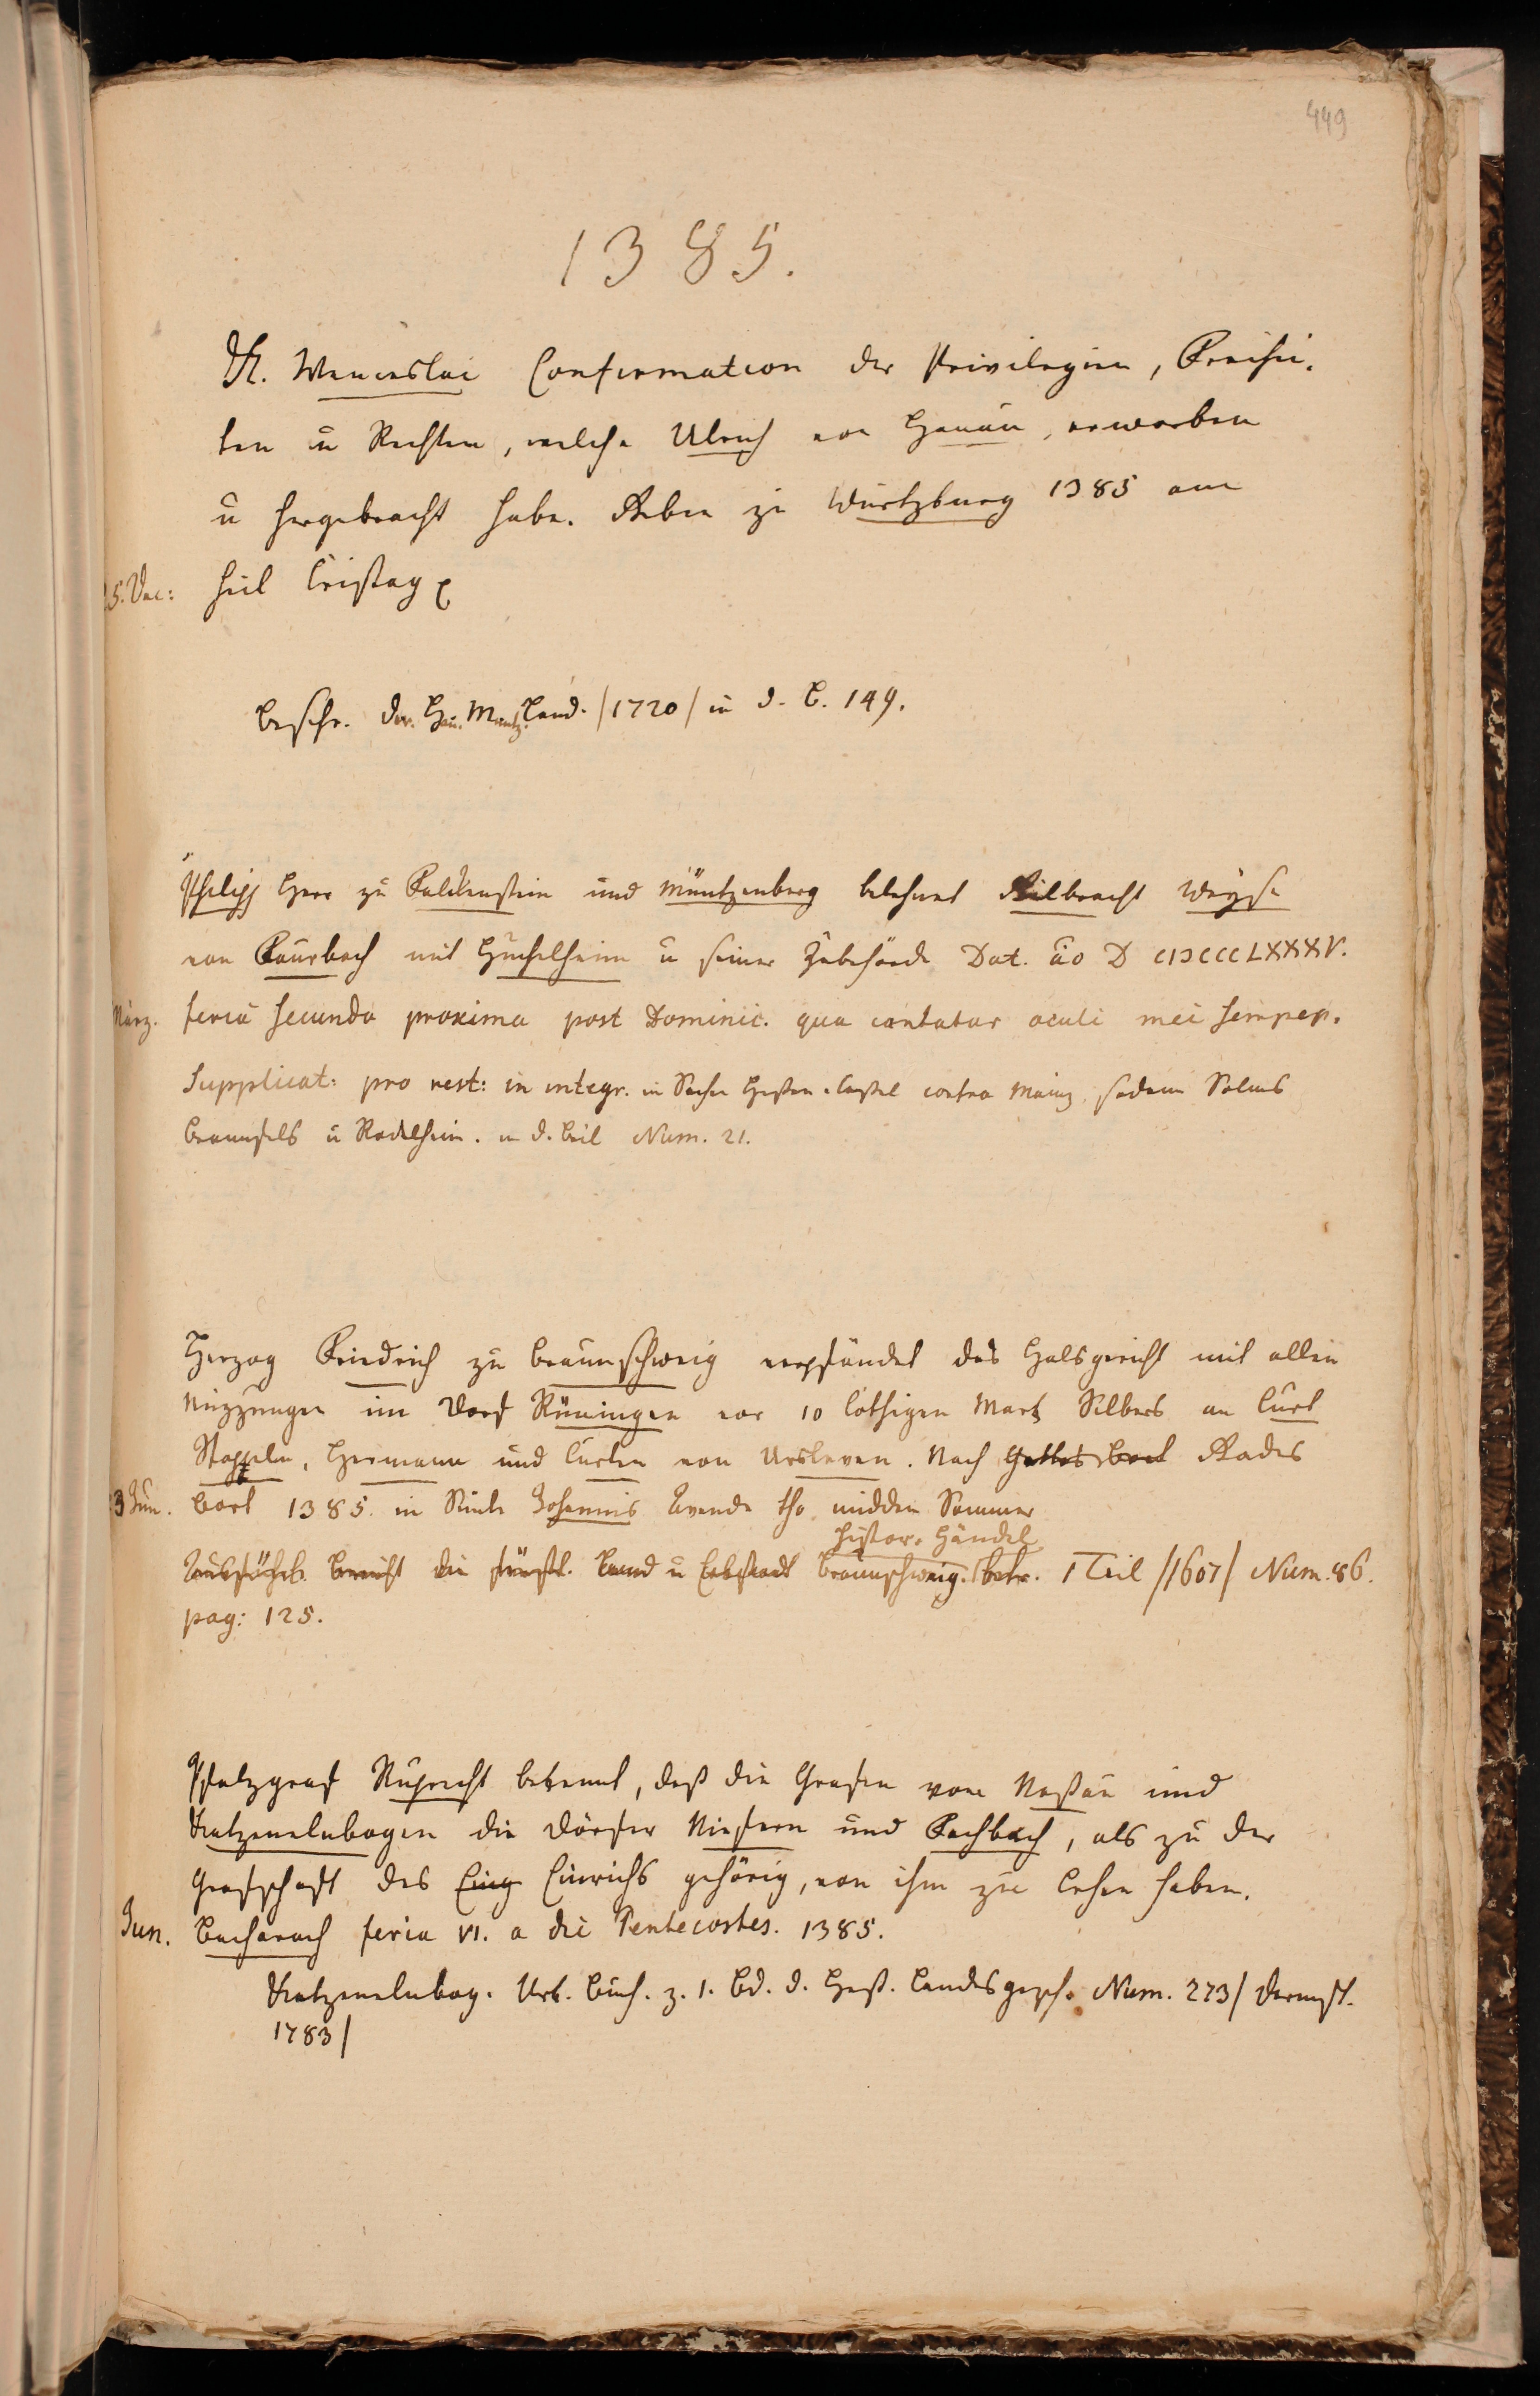 449
1385.
K. Wenceslai Confirmation der Privilegien, Freihei-
ten u Rechten, welche Ulrich von Hanau, erworben
u hergebracht habe. Geben zu Würtzburg 1385 am
25. Dec: heil Cristag
Beschr. der. Han. Müntz. Land. /1720/ in d. B. 149.
Philipp Herr zu Falckenstein und Müntzenberg belehnet Gilbracht Weyse
von Faurbach mit Huchelheim u seiner Zubehörde Dat. ao D CIƆCCCLXXXV.
März. feria secunda proxima post Dominic. qua cantatur oculi mei semper.
Supplicat: pro rest: in integr. in Sache Hessen-Cassel contra Mainz, sodann Solms
Braunfels u Rödelheim. in d. Beil Num. 21.
Herzog Friedrich zu Braunschweig verpfändet das Halsgericht mit allen
Nuzzungen im Dorf Rüningen vor 10 löthigen Mark Silbers an Curt
Stappeln, Hermann und Curten von Ursleven. Nach Gottes bort Gades
23 Jun. bort 1385. in Sinte Johannis Avende tho midden Sommer
histor. Händel
Ausführl. Bericht die fürstl. Land u Erbstadt Braunschweig. betr. 1 Teil /1607/ Num. 86.
pag: 125.
Pfalzgraf Ruprecht bekennt, daß die Grafen von Naßau und
Katzenelnbogen die Dörfer Niefern und Fachbach, als zu der
Grafschaft des Einrichs gehörig, von ihm zu Lehen haben.
Jun. Bacharach feria VI. a die Pentecostes. 1385.
Katzenelnbog. Urk. Buch. z. 1. Bd. d. Heß. Landesgesch. Num. 273/ Darmst.
1783/